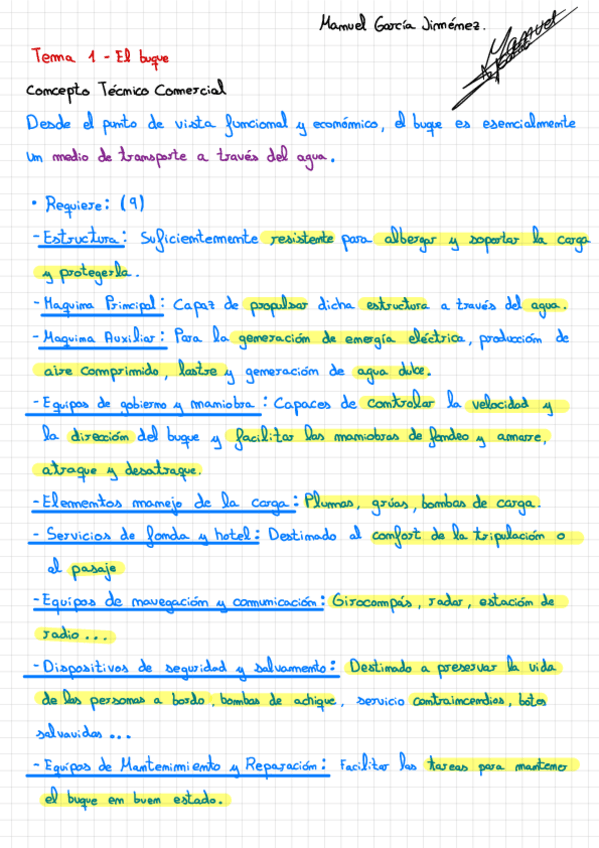 Manuel García Jiménez.
Manuel
Tema 1 - El buque
Concepto Técnico Comercial
Desde el punto de vista funcional y económico, el buque es esencialmente
un medio de transporte a través del agua.
• Requiere: (9)
- Estructura: Suficientemente resistente para albergar y soportar la carga
y protegerla.
- Maquina Principal: Capaz de propulsar dicha estructura a través del agua.
- Maquina Auxiliar: Para la generación de energía eléctrica, producción de
aire comprimido, lastre y generación de agua dulce.
- Equipos de gobierno y maniobra: Capaces de controlar la velocidad y
la dirección del buque y facilitar las maniobras de fondeo y amarre,
atraque y desatraque.
- Elementos manejo de la carga: Plumas, grúas, bombas de carga.
- Servicios de fonda y hotel: Destinado al comfort de la tripulación o
al pasaje
- Equipos de navegación y comunicación: Girocompás, radar, estación de
radio...
- Dispositivos de seguridad y salvamento: Destinado a preservar la vida
de las personas a bordo, bombas de achique, servicio contraincendios, botes
salvavidas...
- Equipos de Mantenimiento y Reparación: Facilitar las tareas para mantener
el buque en buen estado.